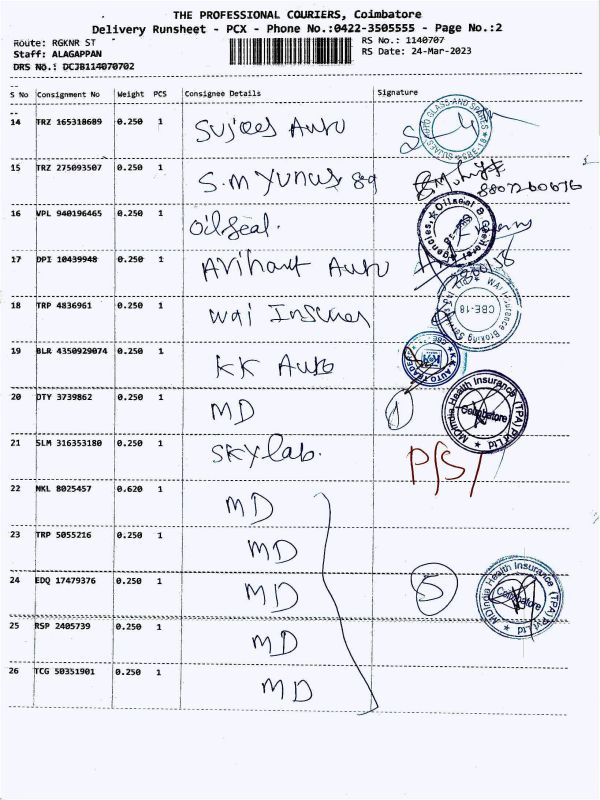 THE PROFESSIONAL COURIERS, Coimbatore
Delivery Runsheet - PCX - Phone No.:0422-3505555 - Page No.:2
Route: RGKNR ST
RS No.: 1140707
Staff: ALAGAPPAN
RS Date: 24-Mar-2023
DRS No.: DCJB114070702
S No Consignment No Weight PCS Consignee Details Signature
14 TRZ 165318689 0.250 1 Sujees Auto
15 TRZ 275093507 0.250 1 S.M Yunus 8807260676
16 VPL 940196465 0.250 1 Oilseal.
17 DPI 10439948 0.250 1 Arihant Auto
18 TRP 4836961 0.250 1 Wai CBE-18
19 BLR 4350929074 0.250 1 KK Auto
20 DTY 3739862 0.250 1 MD 1 MDIndia Health Insurance (TPA) Pvt Ltd Coimbatore
21 SLM 316353180 0.250 1 Skylab. P/S/
22 NKL 8025457 0.620 1 MD
23 TRP 5055216 0.250 1 MD
24 EDQ 17479376 0.250 1 MD 5 MDIndia Health Insurance (TPA) Pvt Ltd Coimbatore
25 RSP 2405739 0.250 1 MD
26 TCG 50351901 0.250 1 MD